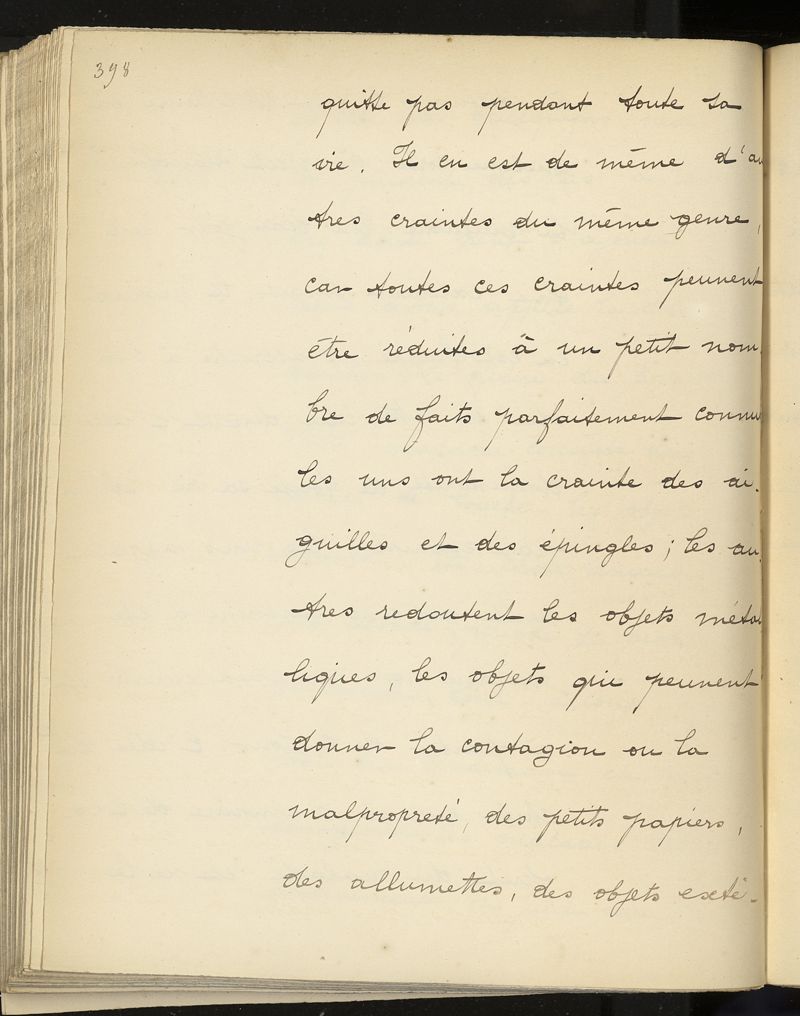 398
quitte pas pendant toute sa
vie. Il en est de même d'au
tres craintes du même genre,
car toutes ces craintes peuvent
être réduites à un petit nom-
bre de faits parfaitement connu
les uns ont la crainte des ai-
guilles et des épingles; les au-
tres redoutent les objets métal
liques, les objets qui peuvent
donner la contagion ou la
malpropreté, des petits papiers,
des allumettes, des objets exté-